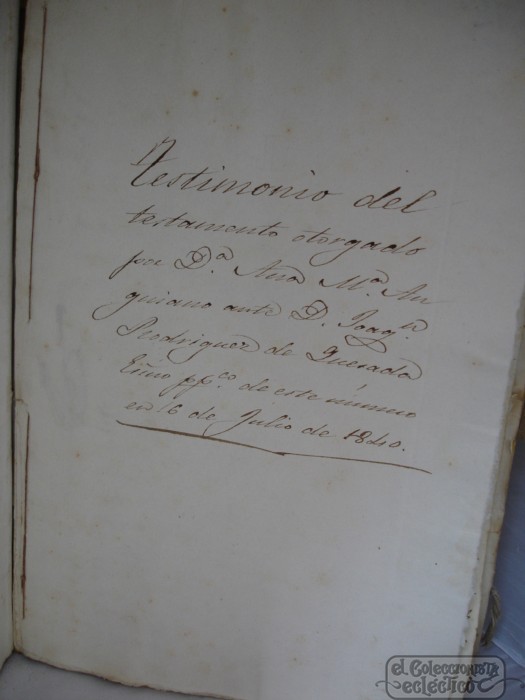 Testimonio del
testamento otorgado
por D.ª Ana M.ª An
guiano ante D. Joaq.n
Rodriguez de Quesada
Esno pp.co de este número
en 6 de Julio de 1840.
el Coleccionista
ecléctico